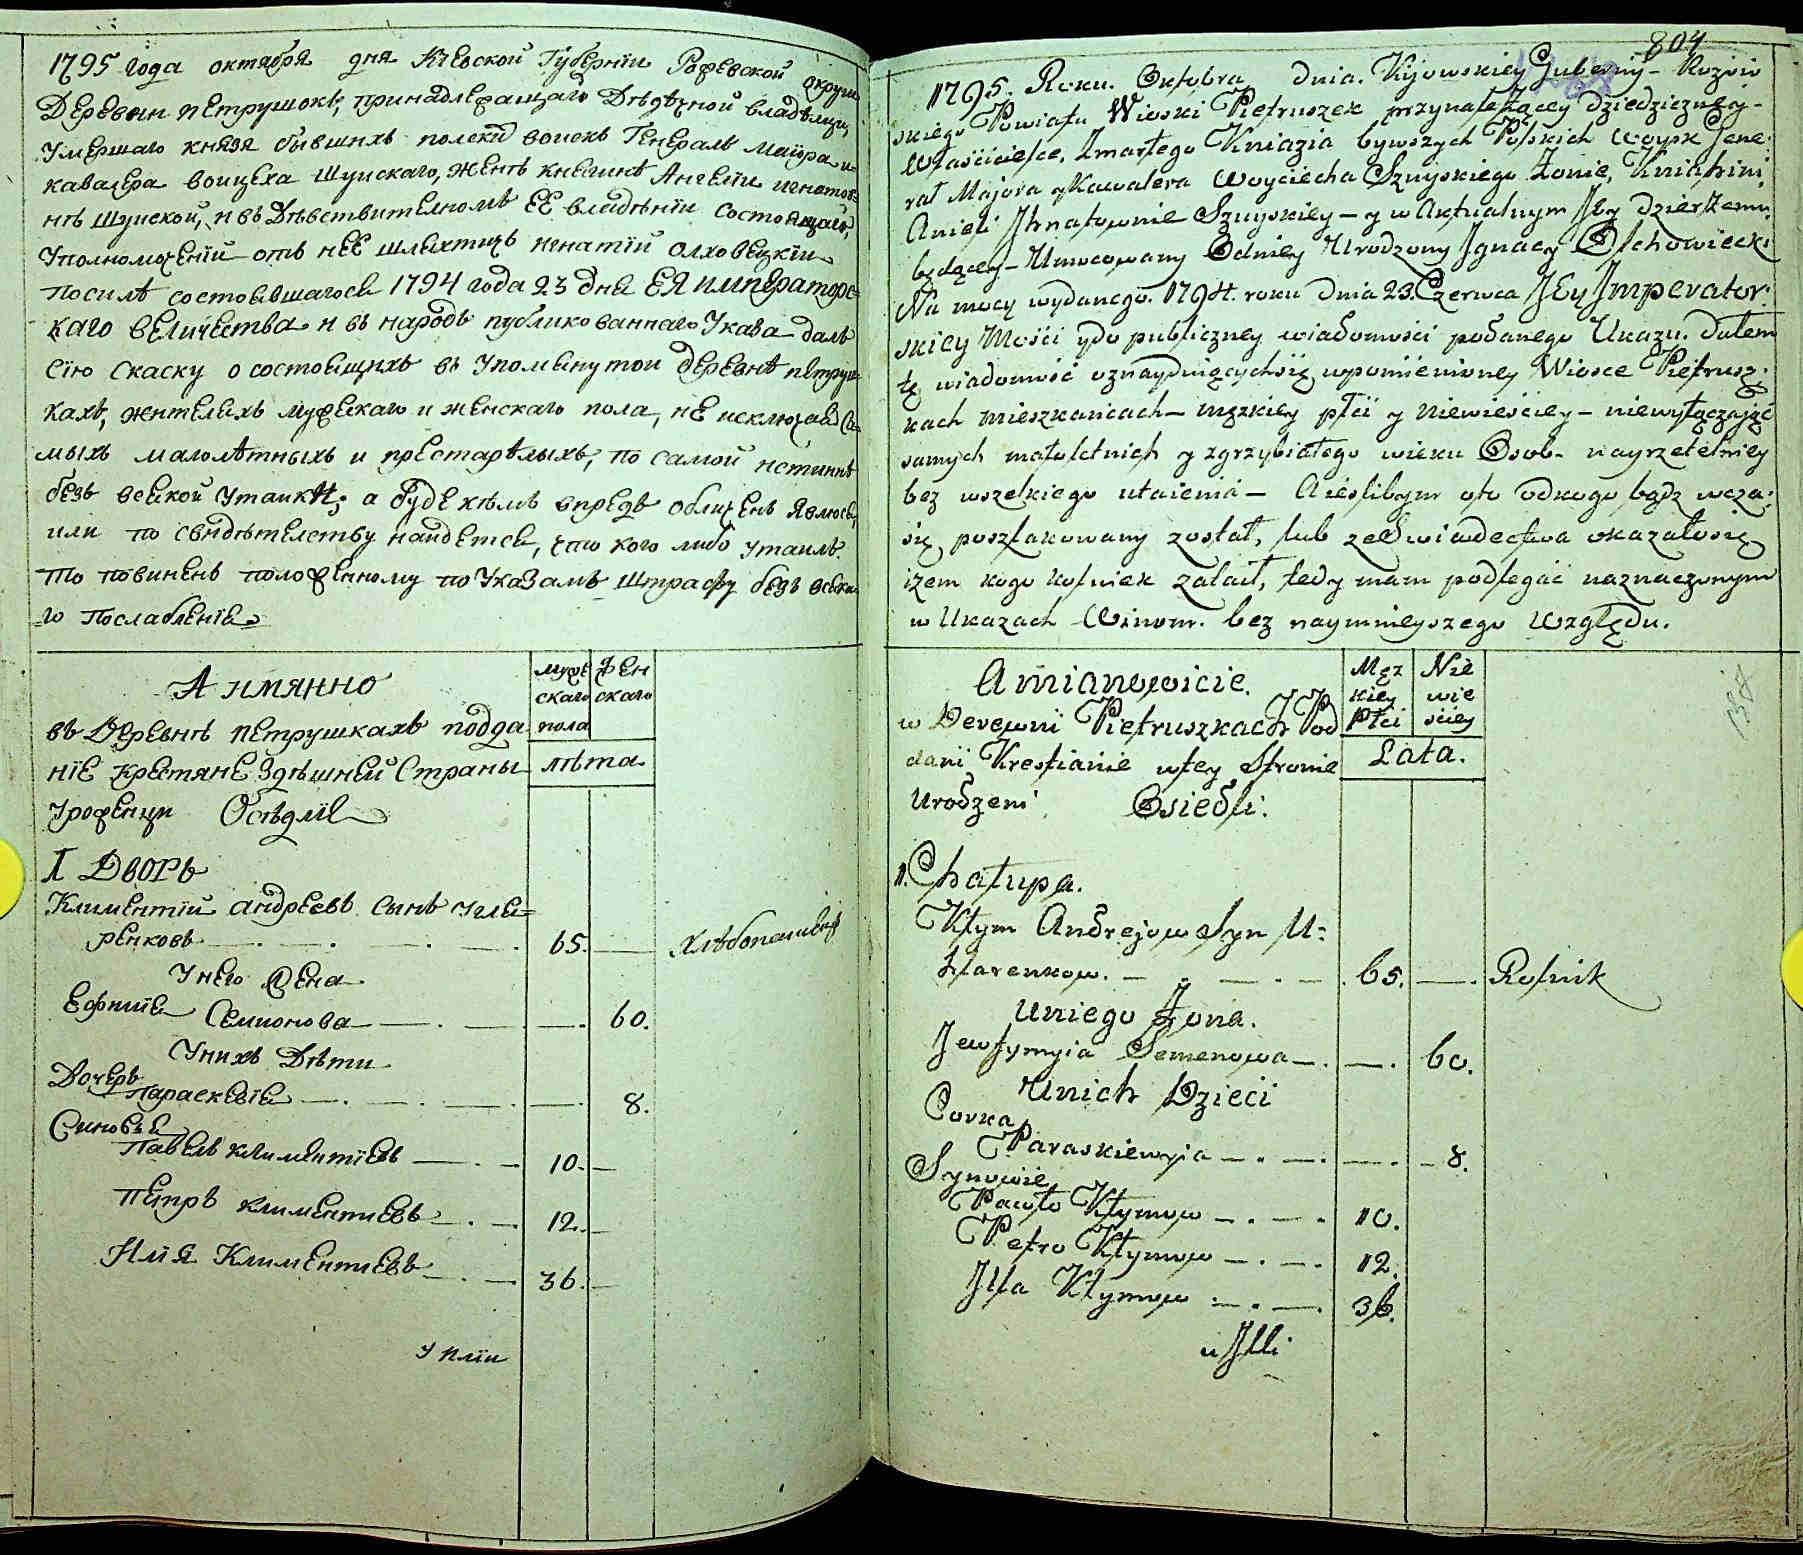 1795 года октября дня Кїевской Губернїи Рожевской округи
Деревни Петрушокъ, принадлежащаго Дѣдѣчной владѣлицѣ
умершаго князя бывшихъ полскихъ воискъ Генералъ маиѡра и
кавалера воицеха Шуискаго, женѣ кнегинѣ Ангелїи игнатов
нѣ Шуиской, и въ Дѣвствителномъ ЕЕ владѣнїи состоящаго,
Уполномоченїй отъ нЕЕ шляхтичъ игнатїй олховецкїи
Посилѣ состоявшагося 1794 года 23 дня ЕЯ императорс
каго величества и въ народъ публикованнаго Указа далъ
сїю скаску о состоящихъ въ Упомянутой деревнѣ петруш
кахъ, жителяхъ мужескаго и женскаго пола, не исключая са
мыхъ малолѣтныхъ и престарѣлыхъ, по самой истиннѣ
безъ всякой утаики; а буде кѣмъ впредъ обличенъ явлюсь,
или по свидѣтелству найдется, что кого либо утаилъ
то повиненъ положенному по Указамъ штрафу безъ всяка
го послабленїя
А имянно
муже
скаго
пола
жен
скаго
въ Деревнѣ петрушкахъ подда
нїе крестяне здѣшней страны
лѣта
урожденци Осѣдлїе
1 Дворъ
Климентїй андреевъ сынъ угле=
ренковъ 65. Хлѣбопашецъ
Унего жена
Ефимїя Семионова 60.
Унихъ Дѣти
Дочеръ
Параскевїя 8.
Синовья
Павелъ климентїевъ 10.
Петръ климентиевъ 12.
Илїя Климентиевъ 36.
у илїи
804
1795. Roku. Oktobra dnia. Kijowskiey Gubernij - Rożow
skiego Powiatu Wioski Pietruszek przynależącey dziedziczney -
Właścicielce, Zmarłego Kniazia bywszych Polskich woysk Jene:
rał Majora y Kawalera Woyciecha Szuyskiego Żonie, Kniahini
Anieli Ihnatownie Szuyskiey - y w Aktualnym Jey dzierżeniu
będącey - Umocowany Odniey Urodzony Ignacy Olchowiecki
Na mocy wydanego. 1794. roku dnia 23. Czerwca Jey Imperator:
skiey Mości y do publiczney wiadomości podanego Ukazu. dałem
tę wiadomość oznayduiącychsię wpomienioney Wiosce Pietrusz:
kach mieszkańcach - męzkiey płci y Niewieściey - niewyłączaiąc
samych małoletnich y zgrzybiałego wieku Osob - nayrzetelniey
bez wszelkiego utaienia - A ieślibym oto odkogo bądz wcza:
się poszlakowany został, lub zeświadectwa okazałosię
iżem kogo kolwiek zataił, tedy mam podlegać naznaczonym
w Ukazach Winom. bez naymnieyszego Względu.
Amianowicie.
Męz
kiey
Płci
Nie
wie
ściey
w Derewni Pietruszkach Pod
dani Krestianie wtey Stronie
Lata.
Urodzeni Osiedli.
1. Chałupa.
Kłym Andrejow Syn U=
hlarenkow. 65. Rolnik
Uniego Żona.
Jewfymyia Semenowa 60.
Unich Dzieci
Corka
Paraskiewyia 8.
Synowie
Pawło Kłymow 10.
Petro Kłymow 12.
Illa Kłymow 36.
u Illi